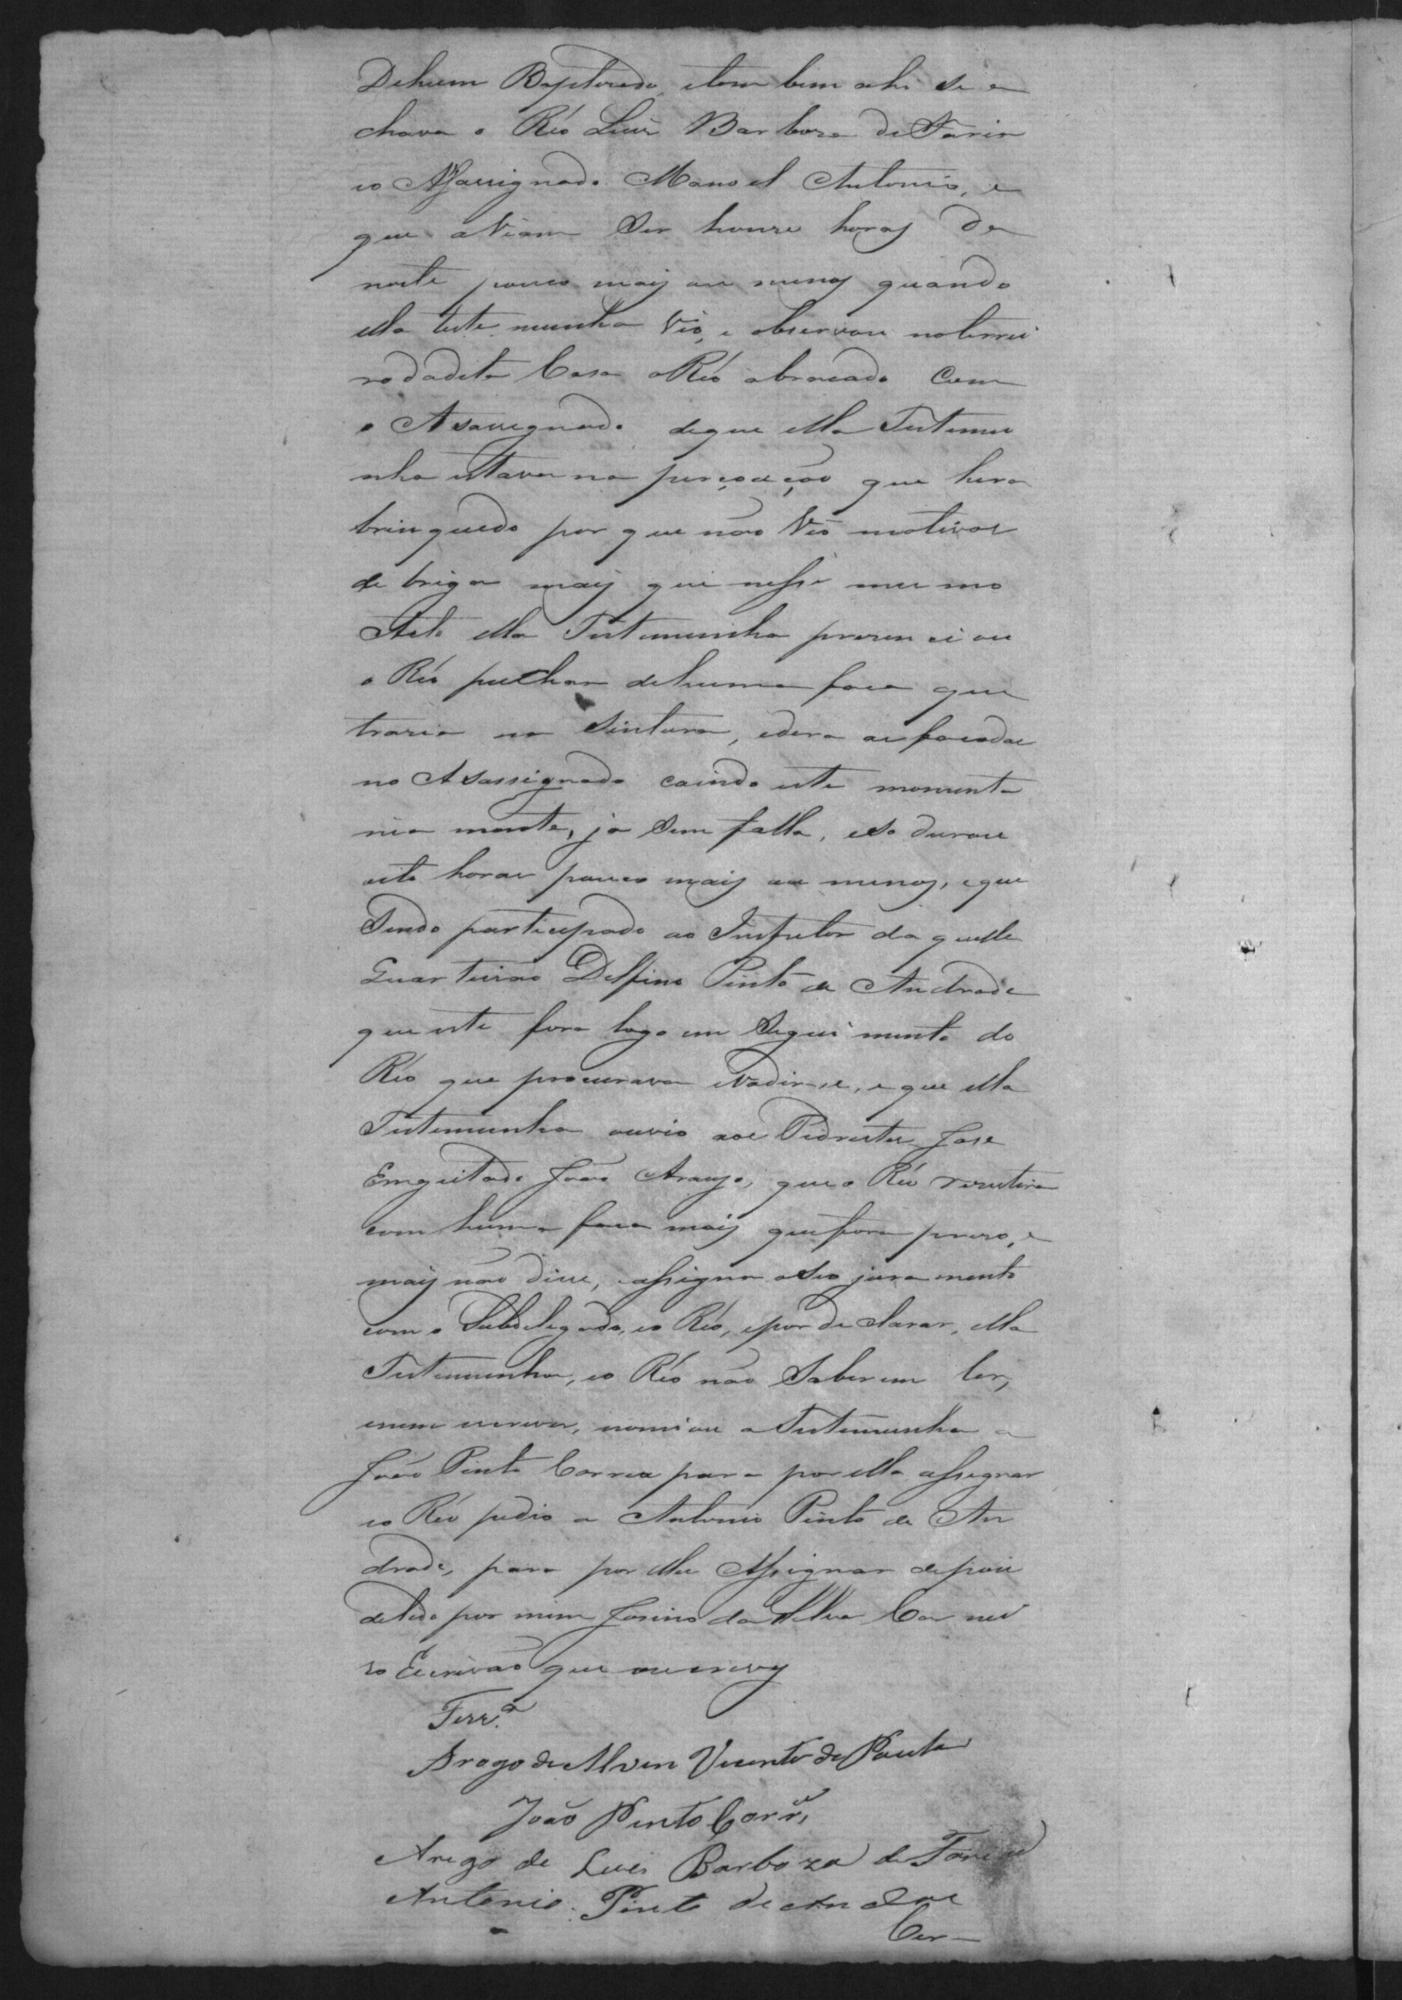 Dehum Baptizado, etambem ahi se a
chava o Réo Luis Barboza de Faria
eo Assassignado Manoel Antonio, e
que aviam ser honze horas da
noite pouco mais ou menos quando
ella testemunha vio, e observou noterrei
ro dadita Casa o Réo abracado com
o Asassignado deque ella Testemu
nha estava na persoação que hera
brinquedo por que não vio motivos
de briga mais que nesse mesmo
Acto ella Testemunha prezenciou
o Réo puchar dehuma faca que
trazia na Sintura, edera as facadas
no Asassignado caindo este momenta
nia mente, ja sem falla, eso durou
oito horas pouco mais ou menos, eque
Sendo participado ao Inspetor daquelle
Quarteirão Delfino Pinto de Andrade
que este fora logo em Seguimento do
Réo que procurava evadirse, e que ella
Testemunha ouvio aos Pedrestes Jose
Emgeitado João Araujo, que o Réo rezestira
com huma faca mais que fora prezo, e
mais não disse, assigna o Seo juramento
com o Subdelegado, eo Réo, epor declarar, ella
Testemunha, eo Réo não Saberem ler,
enem escrever, nomiou a Testemunha a
João Pinto Correa para por ella assignar
eo Réo pedio a Antonio Pinto de An
drade, para por elle Assignar depois
delido por mim Josino da Silva Carnei
ro Escrivão que oescrevy
Ferr.ª
Arogo de Vicente de Paula
João Pinto Corr.ª
Arogo de Luis Barboza de Faria
Antonio Pinto de Andade
Cer